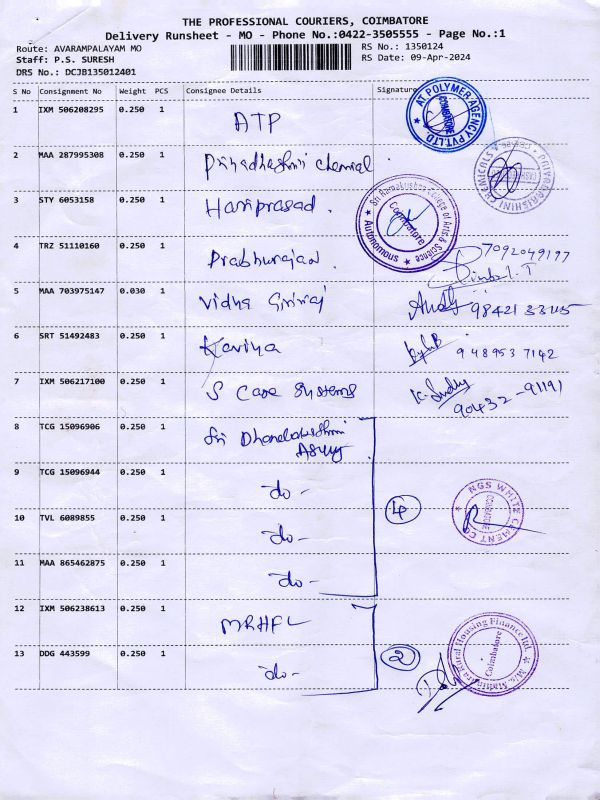 THE PROFESSIONAL COURIERS, COIMBATORE
Delivery Runsheet - MO - Phone No.:0422-3505555 - Page No.:1
Route: AVARAMPALAYAM MO RS No.: 1350124
Staff: P.S. SURESH RS Date: 09-Apr-2024
DRS No.: DCJB135012401
S No Consignment No Weight PCS Consignee Details Signature
1 IXM 506208295 0.250 1 ATP AT POLYMER AGENCY PVT.LTD. COIMBATORE
2 MAA 287995308 0.250 1 Priyadharshni Chemical
3 STY 6053158 0.250 1 Hariprasad. Sri Ramakrishna College of Arts & Science Autonomous Coimbatore
4 TRZ 51110160 0.250 1 Prabhurajan. 7092049197
5 MAA 703975147 0.030 1 Vidha Giriraj
6 SRT 51492483 0.250 1 Kaviya 948953 7142
7 IXM 506217100 0.250 1 S Care Systems 90432-91191
8 TCG 15096906 0.250 1 Sri
9 TCG 15096944 0.250 1 do- 4 NGS WHITE CEMENT CO COIMBATORE
10 TVL 6089855 0.250 1 do-
11 MAA 865462875 0.250 1 do-
12 IXM 506238613 0.250 1 MRHFL
13 DDG 443599 0.250 1 do- 2 Rural Housing Finance Coimbatore